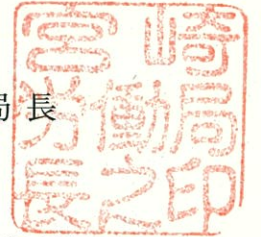 局長
宮崎
労働局
長之印